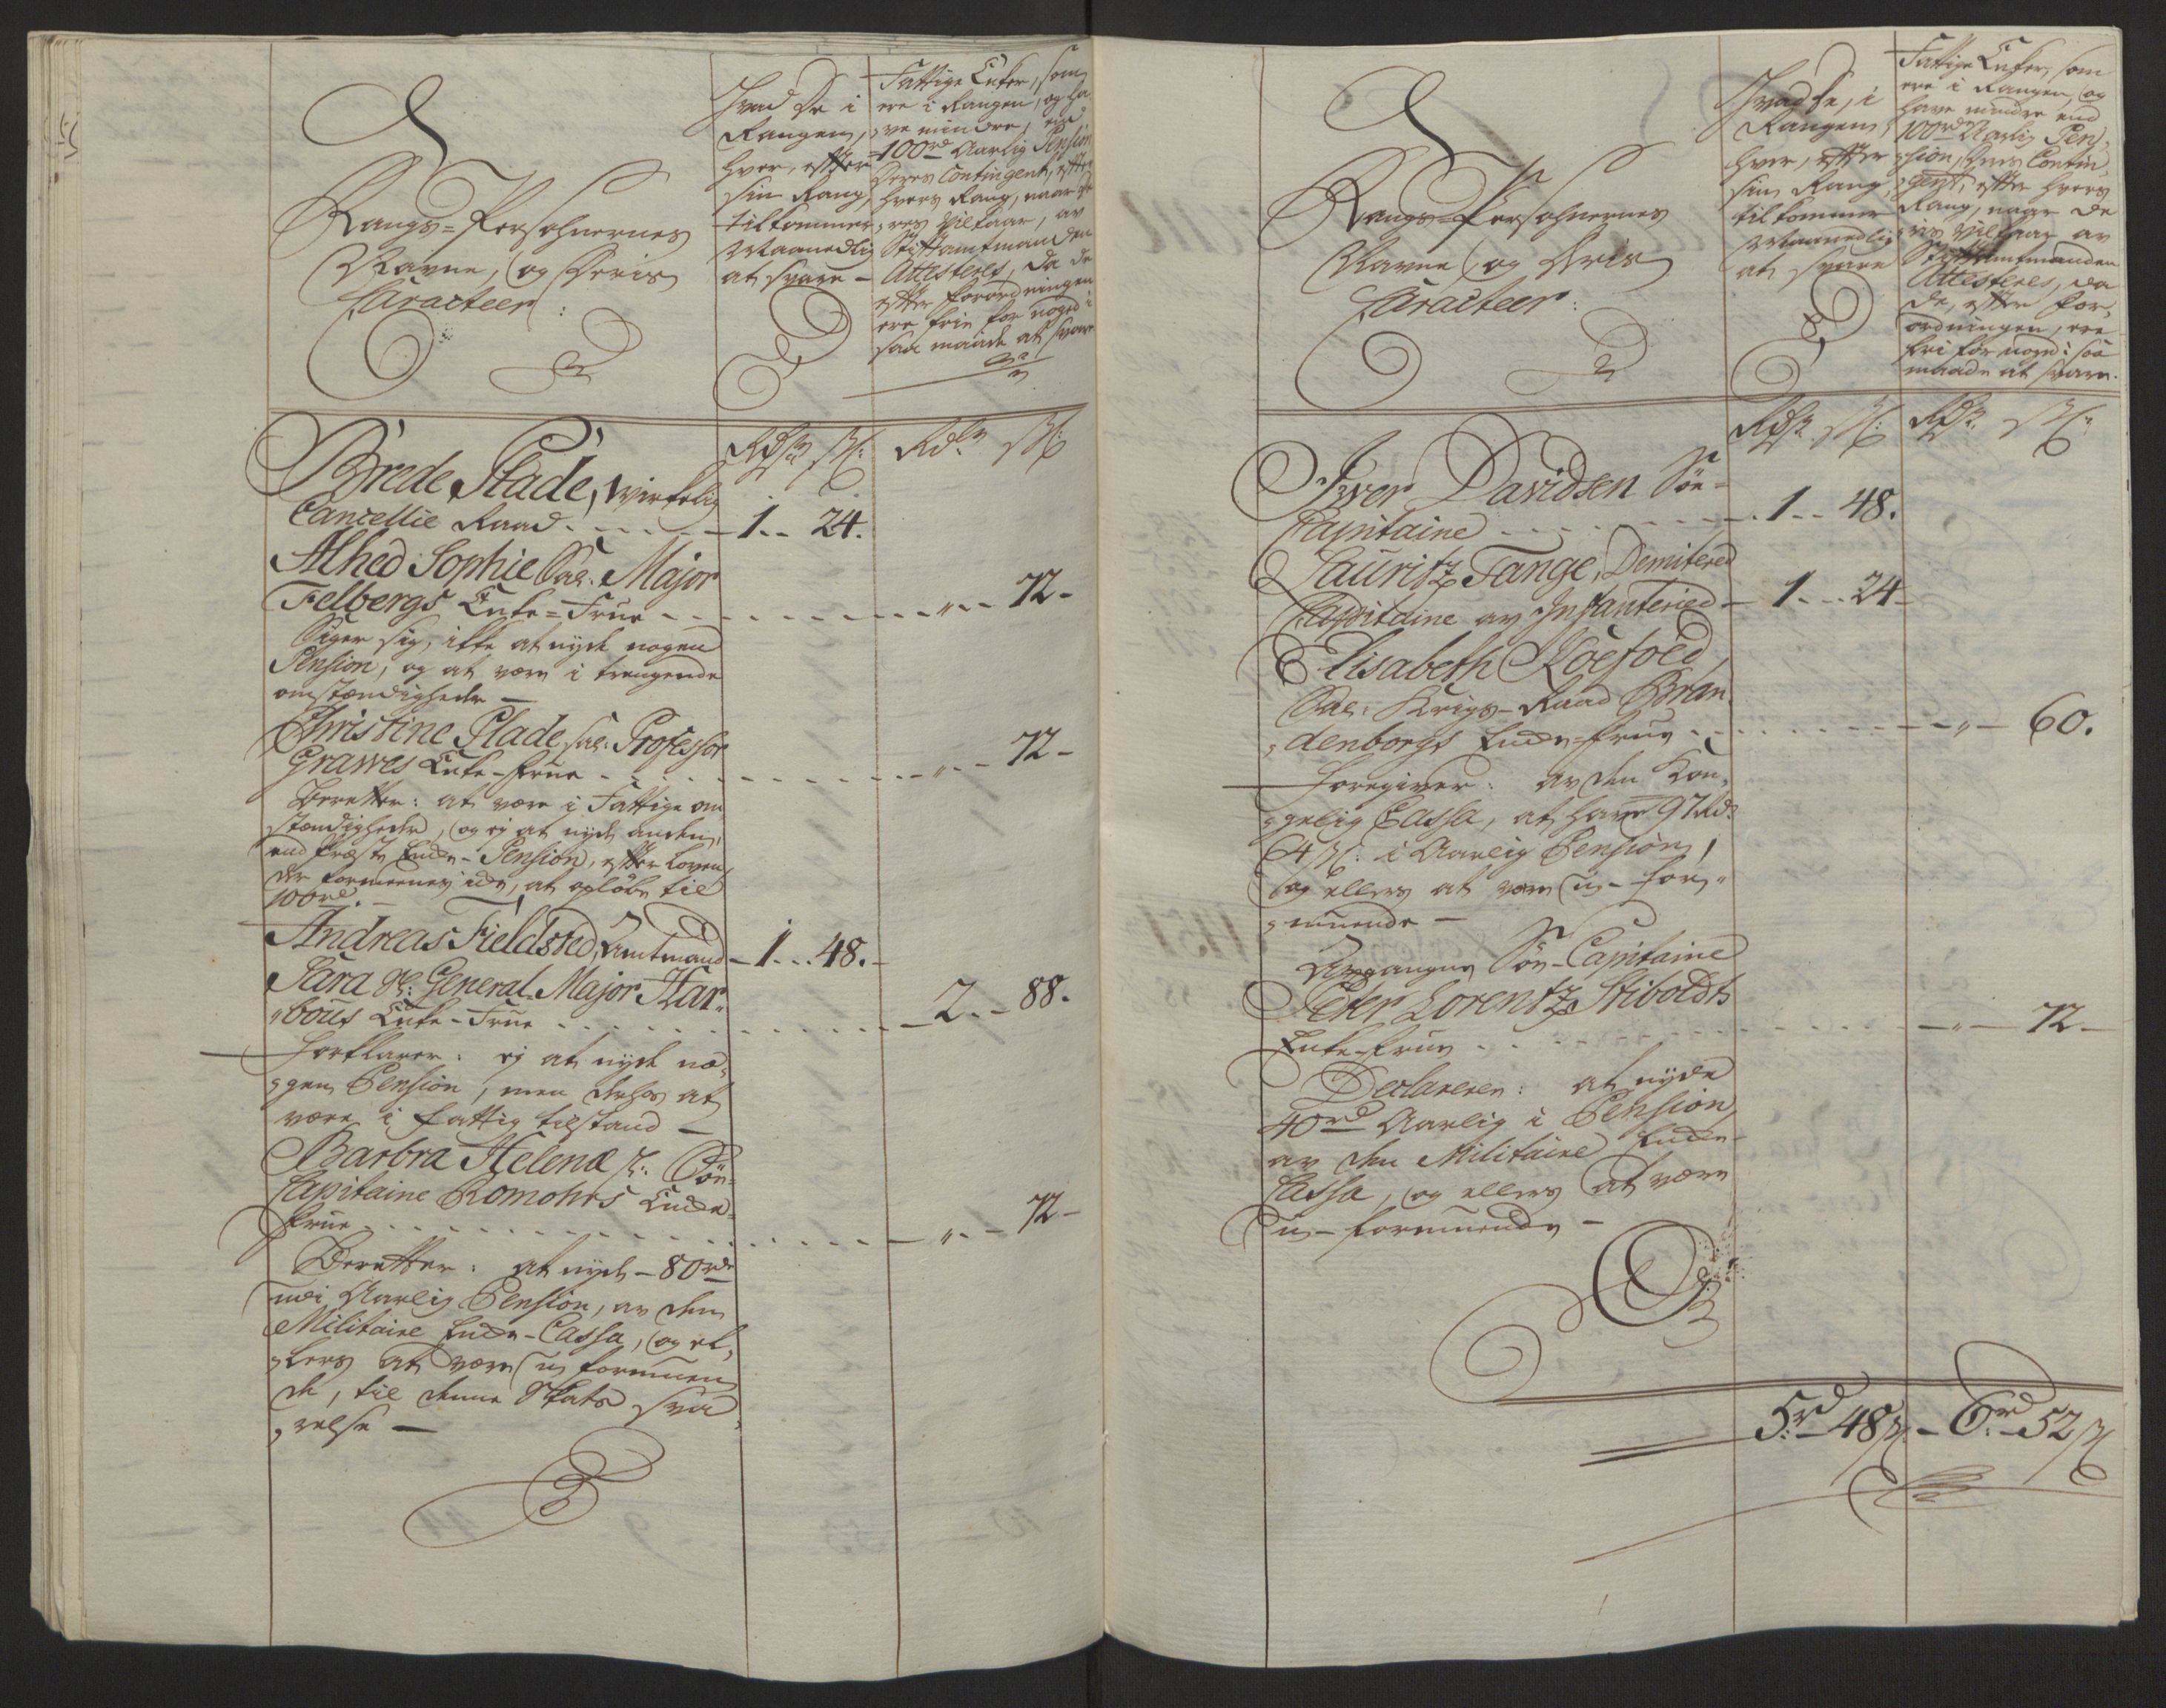 Rangs-Persohnernes
Navne, og Deris
Caracteer:
Hvad De i
Rangen,
hver, efter
sin Rang,
tilkommer
Maanedlig
at svare -
Fattige Enker, som
ere i Rangen, og ha
ve mindre, end
100rd Aarlig Pension
Deres Contingent, efter
hvers Rang, naar de
res Vilkaar, av
Stiftamtmanden
Attesteres, da de
efter Forordningen
ere frie for noged i
saa maade at svare
Rdlr ß: Rdlr ß
Brede Plade, Wirkelig
Cancellie Raad - 1 - 24.
Alhed Sophie Sal: Major
Felbergs Enke-Frue - " - 72 -
Siger sig, ikke at nyde nogen
Pension, og at være i trengende
omstændigheder -
Christine Plade sal: Professor
Grawes Enke-Frue - " - 72 -
Beretter: at være i Fattige om
stændigheder, og ej at nyde anden,
end Præste Enke-Pension, efter Loven,
der formeenes icke, at opløbe til
100rd. -
Andreas Fieldsted, Amtmand - 1 - 48. -
Sara Sl: General-Major Har-
"bous Enke-Frue - 2 - 88.
Forklarer: ej at nyde no-
gen Pension, men dess at
være i fattig tilstand -
Barbra Helenæ Sl: Søe-
Capitaine Romohrs Encke-
Frue - " - 72 -
Beretter: at nyde - 80rdr
udi Aarlig Pension, av den
Militaire Enke-Cassa, og el-
lers at være uformuen
de, til denne Skats sva-
relse -
Rangs-Persohnernes
Navne, og Deris
Caracteer:
Hvad De, i
Rangen,
hver, efter
sin Rang,
tilkommer
Maanedlig
at svare
Fattige Enker, som
ere i Rangen, og
have mindre end
100rd Aarlig Pen-
sion, Deres Contin-
gent, efter hvers
Rang, naar de
ris Vilkaar av
Stiftamtmanden
Attesteres, da
de, efter For-
ordningen, ere
fri for noged i saa
maade at svare.
Rdlr ß: Rdlr ß:
Iver Davidsen Søe-
Capitaine - 1 - 48.
Lauritz Tange, Demitered
Capitaine av Infanteried - 1 - 24 -
Elisabeth Koefoed,
Sal: Krigs-Raad Bran
denborgs Enke-Frue - " - 60.
Foregiver: av den Kon-
gelig Cassa, at have 97 Rd:
64 ß: i Aarlig Pension,
og ellers at være u-for-
muende -
Afgangne Søe-Capitaine
Peter Lorentz Stiboldts
Enke-Frue - " - 72 -
Declarerer: at nyde
40rd Aarlig i Pension,
av den Militaire Enke-
Cassa, og ellers at være
u-formuende -
5rd - 48ß - 6rd - 52ß